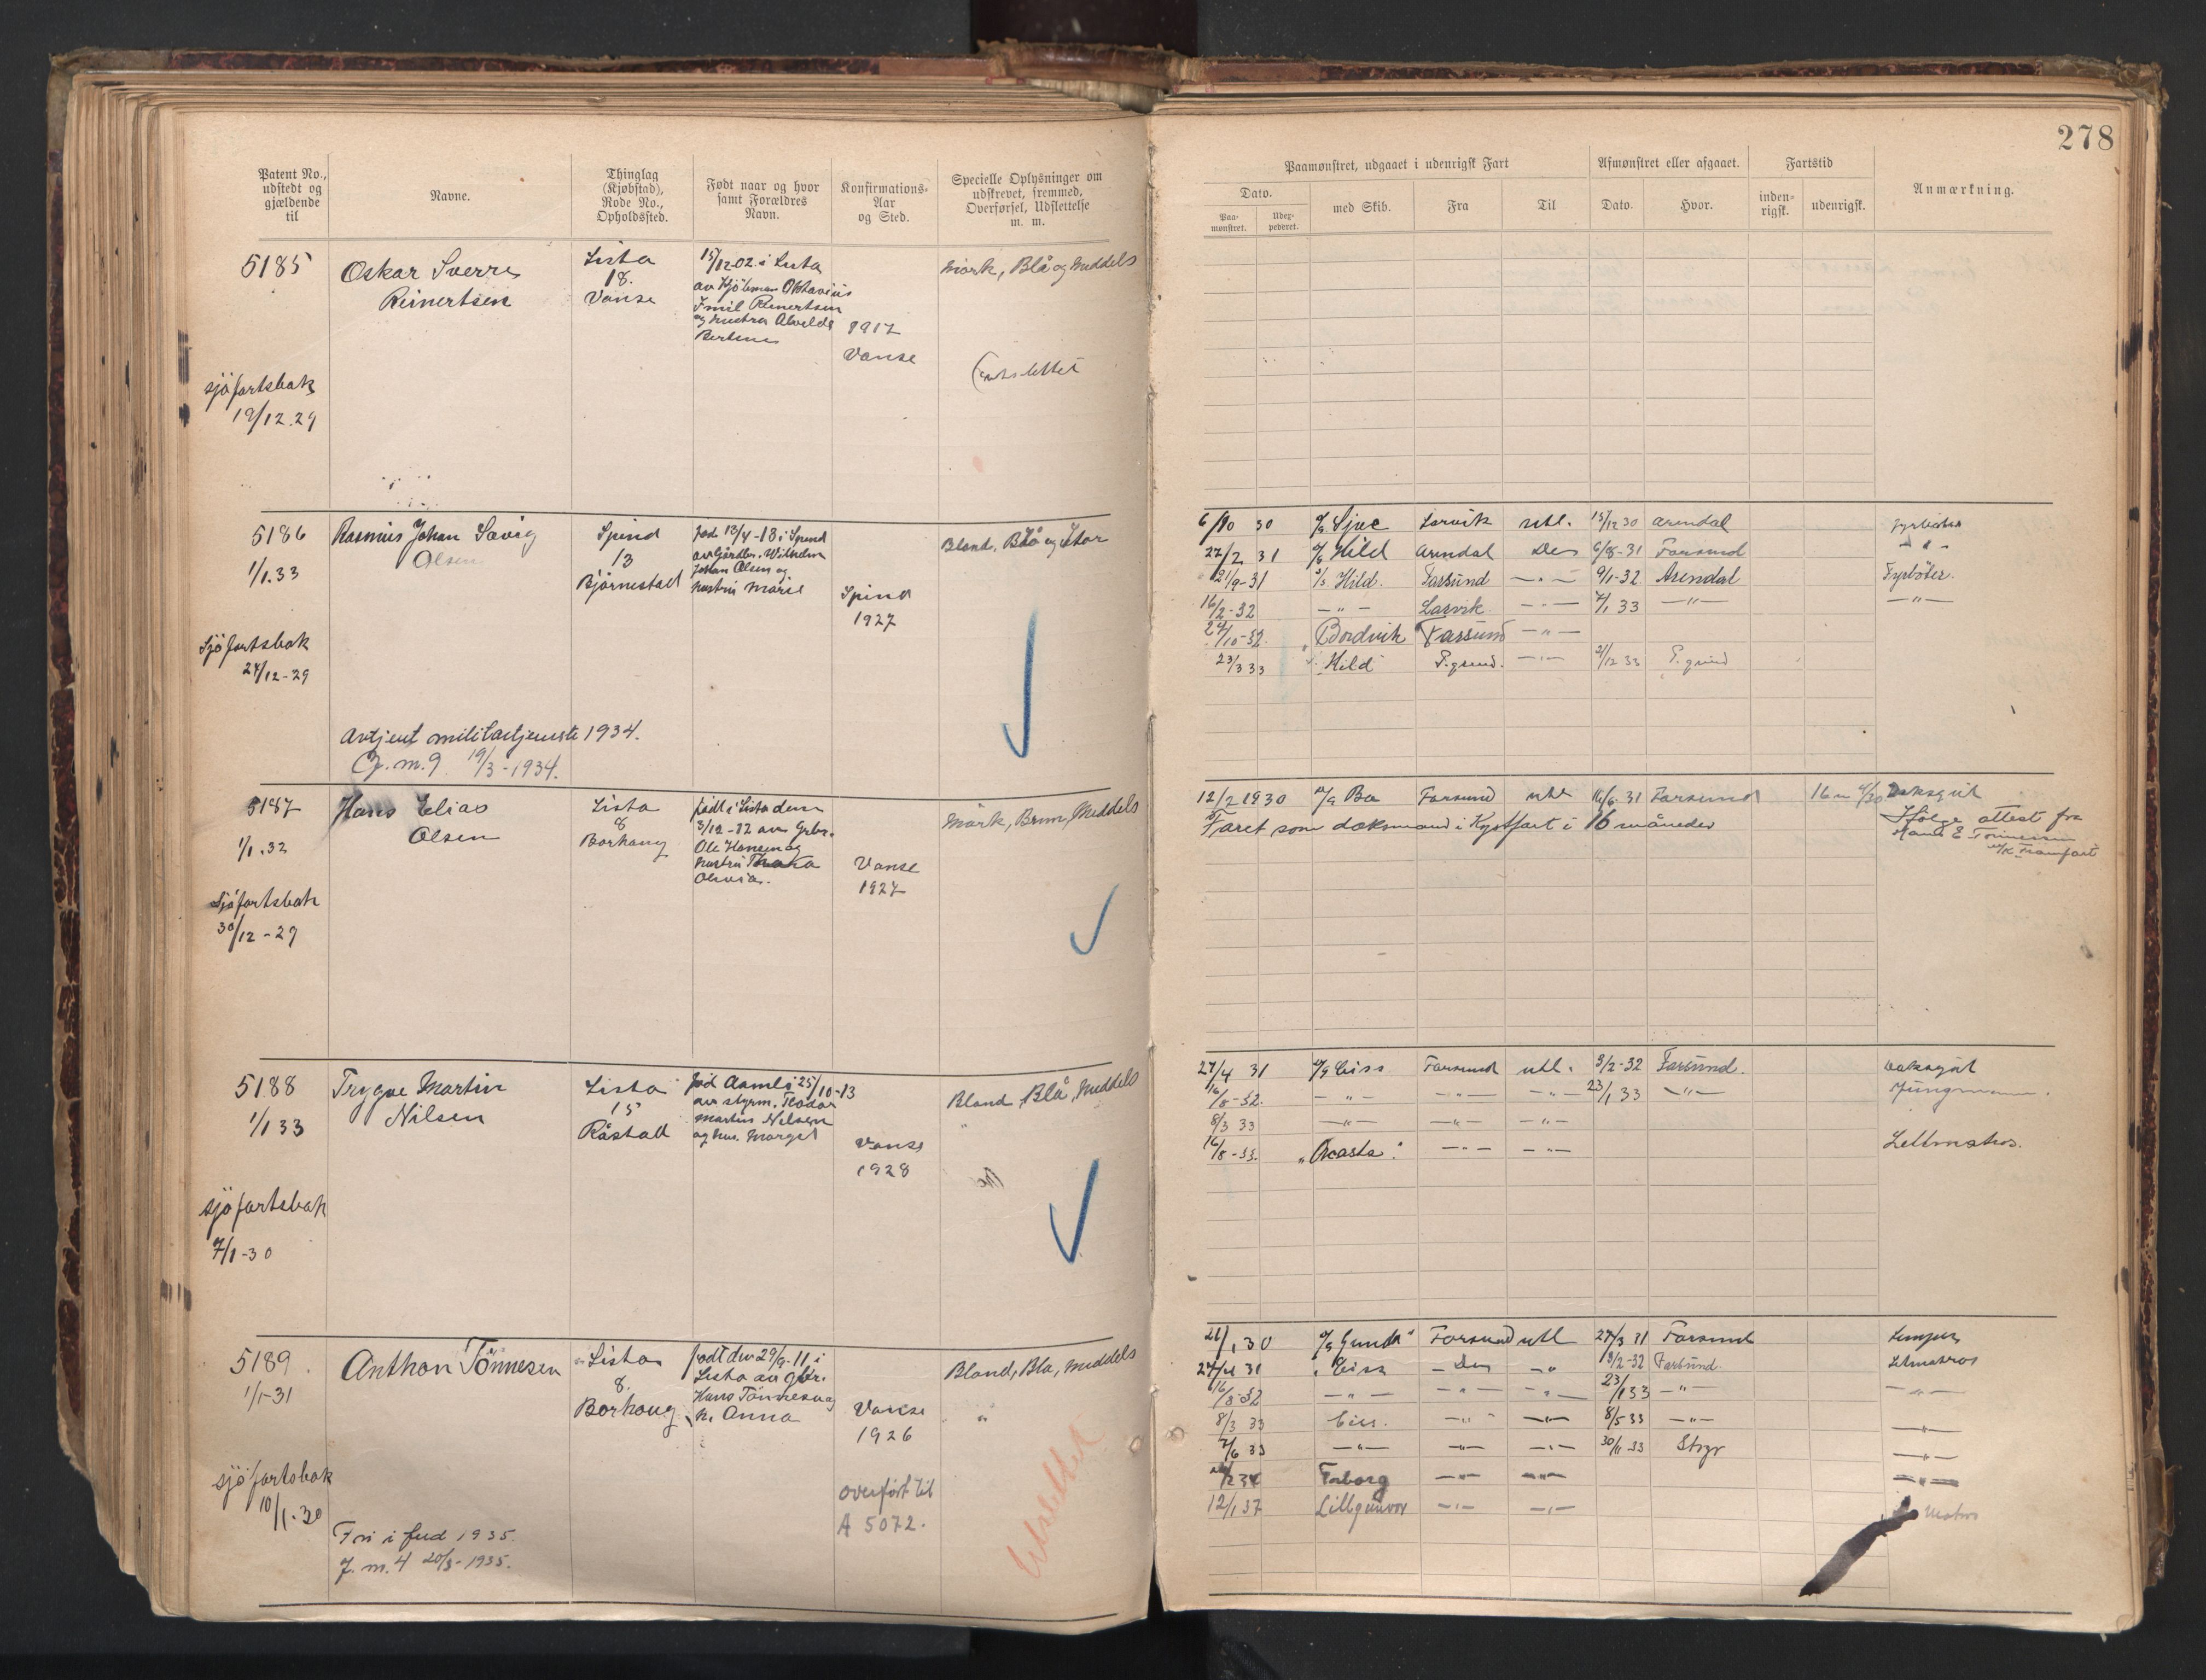 278
Patent No., udstedt og gjældende til
Navne.
Thinglag (Kjøbstad), Rode No., Opholdssted.
Født naar og hvor samt Forældres Navn.
Konfirmations-Aar og Sted.
Specielle Oplysninger om udskrevet, fremmed, Overførsel, Udslettelse m. m.
Paamønstret, udgaaet i udenrigsk Fart
Dato.
Paa-mønstret.
med Skib.
Fra
Til
Afmønstret eller afgaaet.
Dato.
Hvor.
Fartstid
inden-rigsk.
udenrigsk.
Anmærkning.
5185
Oskar Sverre
Reinertsen
Lista
18.
Vanse
15/12-02 i Lista
Emil Reinertsen
og hustru
1917
Vanse
Mørk, Blå og Middels
sjöfartsbok
19/12.29
5186
1/1.33
Rasmus Johan Sævig
Olsen
Spind
13
Bjørnestad
født 13/4-13 i Spind
av Gårdbr. Wilhelm
Johan Olsen og
hustru Marie
Spind
1927
Bland, Blå og Stor
Sjöfartsbok
24/12-29
Avtjent militærtjeneste 1934.
J.m.9 19/3-1934.
6/10 30 Larvik utl. 15/12 30 Arendal Fyrbøter
27/2 31 Hild Arendal Do 6/8-31 Farsund -"-
21/9-31 Hild. Farsund -"- 9/1-32 Arendal Fyrbøter.
16/2-32 -"- Larvik. -"- 7/1 33 -"- -"-
24/10-32. Bordvik Farsund -"-
23/3 33 Hild P.grund. -"- 21/12 33 P.grund
5187
1/1.32
Hans Elias
Olsen
Lista
8
Borhaug
født i Lista den
3/12-12 av Grbr.
Ole Hansen og
hustru
Olivia.
Vanse
1927
Mørk, Brun, Middels
Sjöfartsbok
30/12-29
12/2 1930 Farsund utl 16/6-31 Farsund Dæksgut
Faret som dæksmand i Kystfart i 16 måneder
Ifølge attest fra
Hans E Tønnessen
M/K Framfart
5188
1/1 33
Trygve Martin
Nilsen
Lista
15
Råstad
fød Aamli 25/10-13
av styrm. Teodor
Martin Nilsen
og hu. Margit
Vanse
1928
Bland, Blå, Middels
sjöfartsbok
7/1-30
27/4 31 Ciss Farsund utl. 3/2-32 Farsund. Dæksgut
16/8-32. -"- -"- 23/1 33 -"- Jungmann.
8/3 33 -"- -"- -"-
16/8-33. "Acasta". -"- -"- Lettmatros.
5189
1/1-31
Anthon Tönnesen
Lista
8.
Borhaug
født den 29/9-11 i
Lista av gbr.
Hans Tönnesen og
h. Anna
Vanse
1926
Bland, Blå, Middels
sjöfartsbok
10/1.30
overført til
A 5072.
Utslettet
Fri i fred 1935.
J.m.4 20/3-1935.
21/1 30 "Gunda" Farsund utl 27/3 31 Farsund Lemper
27/4 31 "Ciss -Do- -"- 13/2-32 Farsund. Letmatros
16/8-32 -"- -"- -"- 23/1 33 -"- -"-
8/3 33 Ciss. -"- -"- 8/5 33 -"- -"-
7/6 33 -"- -"- -"- 30/11 33 Styr -"-
Farborg -"- -"- -"-
12/1 37 Lillgunvor -"- -"- Matros